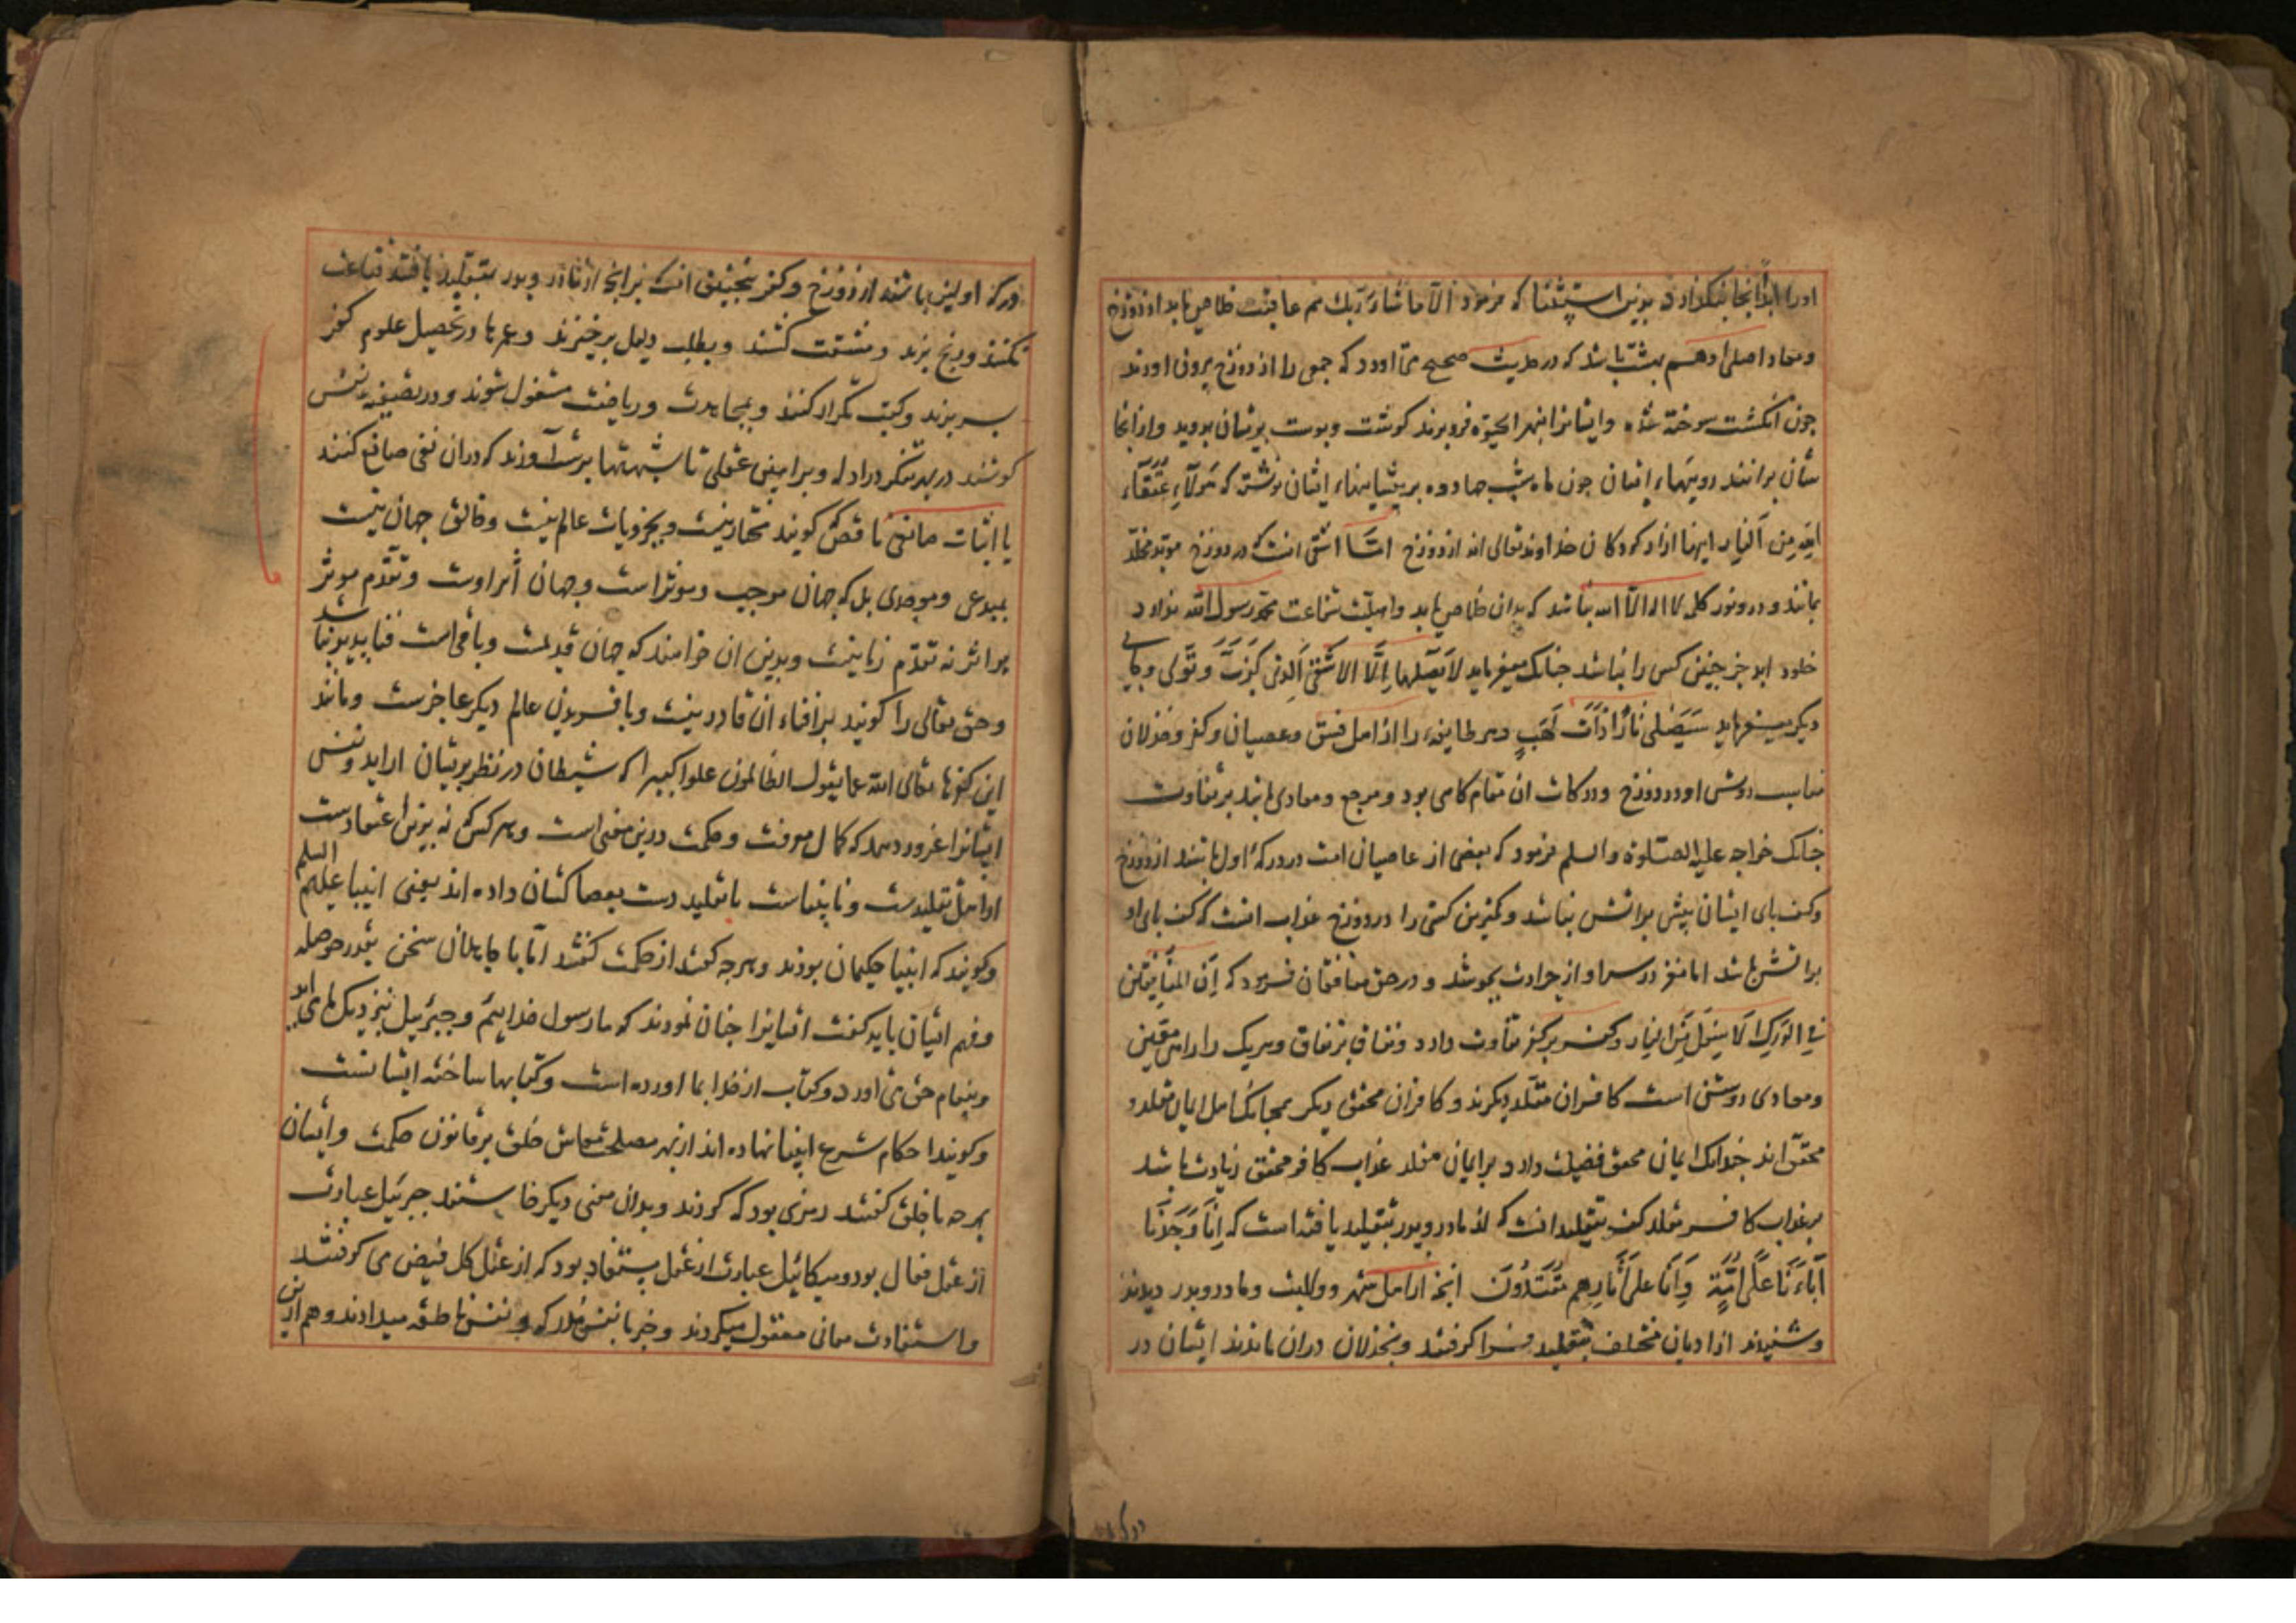 اورا ابدا انجا بنگذارد بدین استثنا که فرمود الا ما شاء ربک هم عاقبت خلاص یابد از دوزخ
ومعاد اصلی او هم بهشت باشد که در حدیث صحیح می آورد که جمعی را از دوزخ بیرون اورند
جون انکشت سوخته شده وایشانرا بنهر الحیوة فروبرند کوشت وبوست بریشان بروید واز انجا
شان برانند رویهاء ایشان جون ماه شب جهارده بر پیشانیهاء ایشان نوشته که هولاء عتقاء
الله من النار اینها ازاد کردکان خداوند تعالی اند از دوزخ اما اشقی انست که در دوزخ موبد مخلد
بماند ودر و نور کلمه لا اله الا الله نباشد که بدان خلاص یابد واهلیت شفاعت محمد رسول الله ندارد
خلود ابد جز جنین کس را نباشد جنانک میفرماید لا یصلیها الا الاشقی الذی کذب وتولی وجای
دیکر میفرماید سیصلی نارا ذات لهب وهر طایفه را از اهل فسق وعصیان وکفر وخذلان
مناسب روش او در دوزخ ودرکات ان مقام کاهی بود ومرجع ومعادی باشد بر تفاوت
جنانک خواجه علیه الصلوة والسلم فرمود که بعضی از عاصیان امت در درکه اول باشند از دوزخ
وکف بای ایشان بیش بر اتش نباشد وکمترین کسی را در دوزخ عذاب انست که کف بای او
بر اتش باشد اما مغز در سر او از حرارت بجوشد ودر حق منافقان فرمود که ان المنافقین
فی الدرک الاسفل من النار وکفر بر کفر تفاوت دارد ونفاق بر نفاق وهریک را رامی معین
ومعادی روشن است کافران مقلد دیکرند وکافران محقق دیکر همجنانک اهل ایمان مقلد و
محقق اند جنانک ایمان محقق فضیلت دارد بر ایمان مقلد عذاب کافر محقق زیادت باشد
بر عذاب کافر مقلد کفر بتقلید انست که از مادر وبدر بتقلید یافته است که انا وجدنا
آباءنا علی امة وانا علی آثارهم مقتدون انجه از اهل شهر وولایت ومادر وبدر دیدند
وشنیدند از ادیان مختلف بتقلید فرا کرفتند وبخذلان دران ماندند ایشان در
درکه
درکه اولین باشند از دوزخ وکفر بتحقیق انست که بر انج از مادر وبدر بتقلید یافتند قناعت
نکنند ورنج برند ومشقت کشند وبطلب دلیل برخیزند وعمرها در تحصیل علوم کفر
بسر برند وکتب تکرار کنند وبمجاهدت وریاضت مشغول شوند ودر تصفیه نفس
کوشند در بهر تفکر در ادله وبراهین عقلی تا شبهتها بدست آورند که دران نفی صانع کنند
یا اثبات صانعی ناقص کویند مختار نیست وبجزویات عالم نیست وخالق جهان نیست
بمبدعی وموجدی بل که جهان موجب وموثر است وجهان اثر اوست وتقدم موثر
بر اثر نه تقدم زمانیست وبدین ان خواهند که جهان قدیمست وباقی است فنابذیر نباشد
وحق تعالی را کویند بر افناء ان قادر نیست وبافریدن عالم دیکر عاجزست ومانند
این کفرها تعالی الله عما یقول الظالمون علوا کبیرا که شیطان در نظر بریشان اراید ونفس
ایشانرا غرور دهد که کمال معرفت وحکمت درین معنی است وهر کس که نه برین اعتقادست
او اهل تقلیدست ونابیناست باتقلید دست بعصا کشان داده اند یعنی انبیا علیهم السلم
وکویند که انبیا حکیمان بودند وهر جه کفتند از حکمت کفتند اما با جاهلان سخن بقدر حوصله
وفهم ایشان باید کفت انبیا جنان نمودند که ما رسول خداییم وجبرئیل بنزدیک ما می آید
وبیغام حق می اورد وکتاب از خدا بما اورده است وکتابها ساخته ایشانست
وکویند احکام شرع انبیا نهاده اند از بهر مصلحت معاش خلق بر قانون حکمت وایشان
هر جه با خلق کفتند رمزی بود که کردند وبدان معنی دیکر خاستند جبرئیل عبارت
از عقل فعال بود ومیکائیل عبارت از عقل مستفاد بود که از عقل کل فیض می کرفتند
واستفادت معانی معقول میکردند وخبر با نفس میدادند